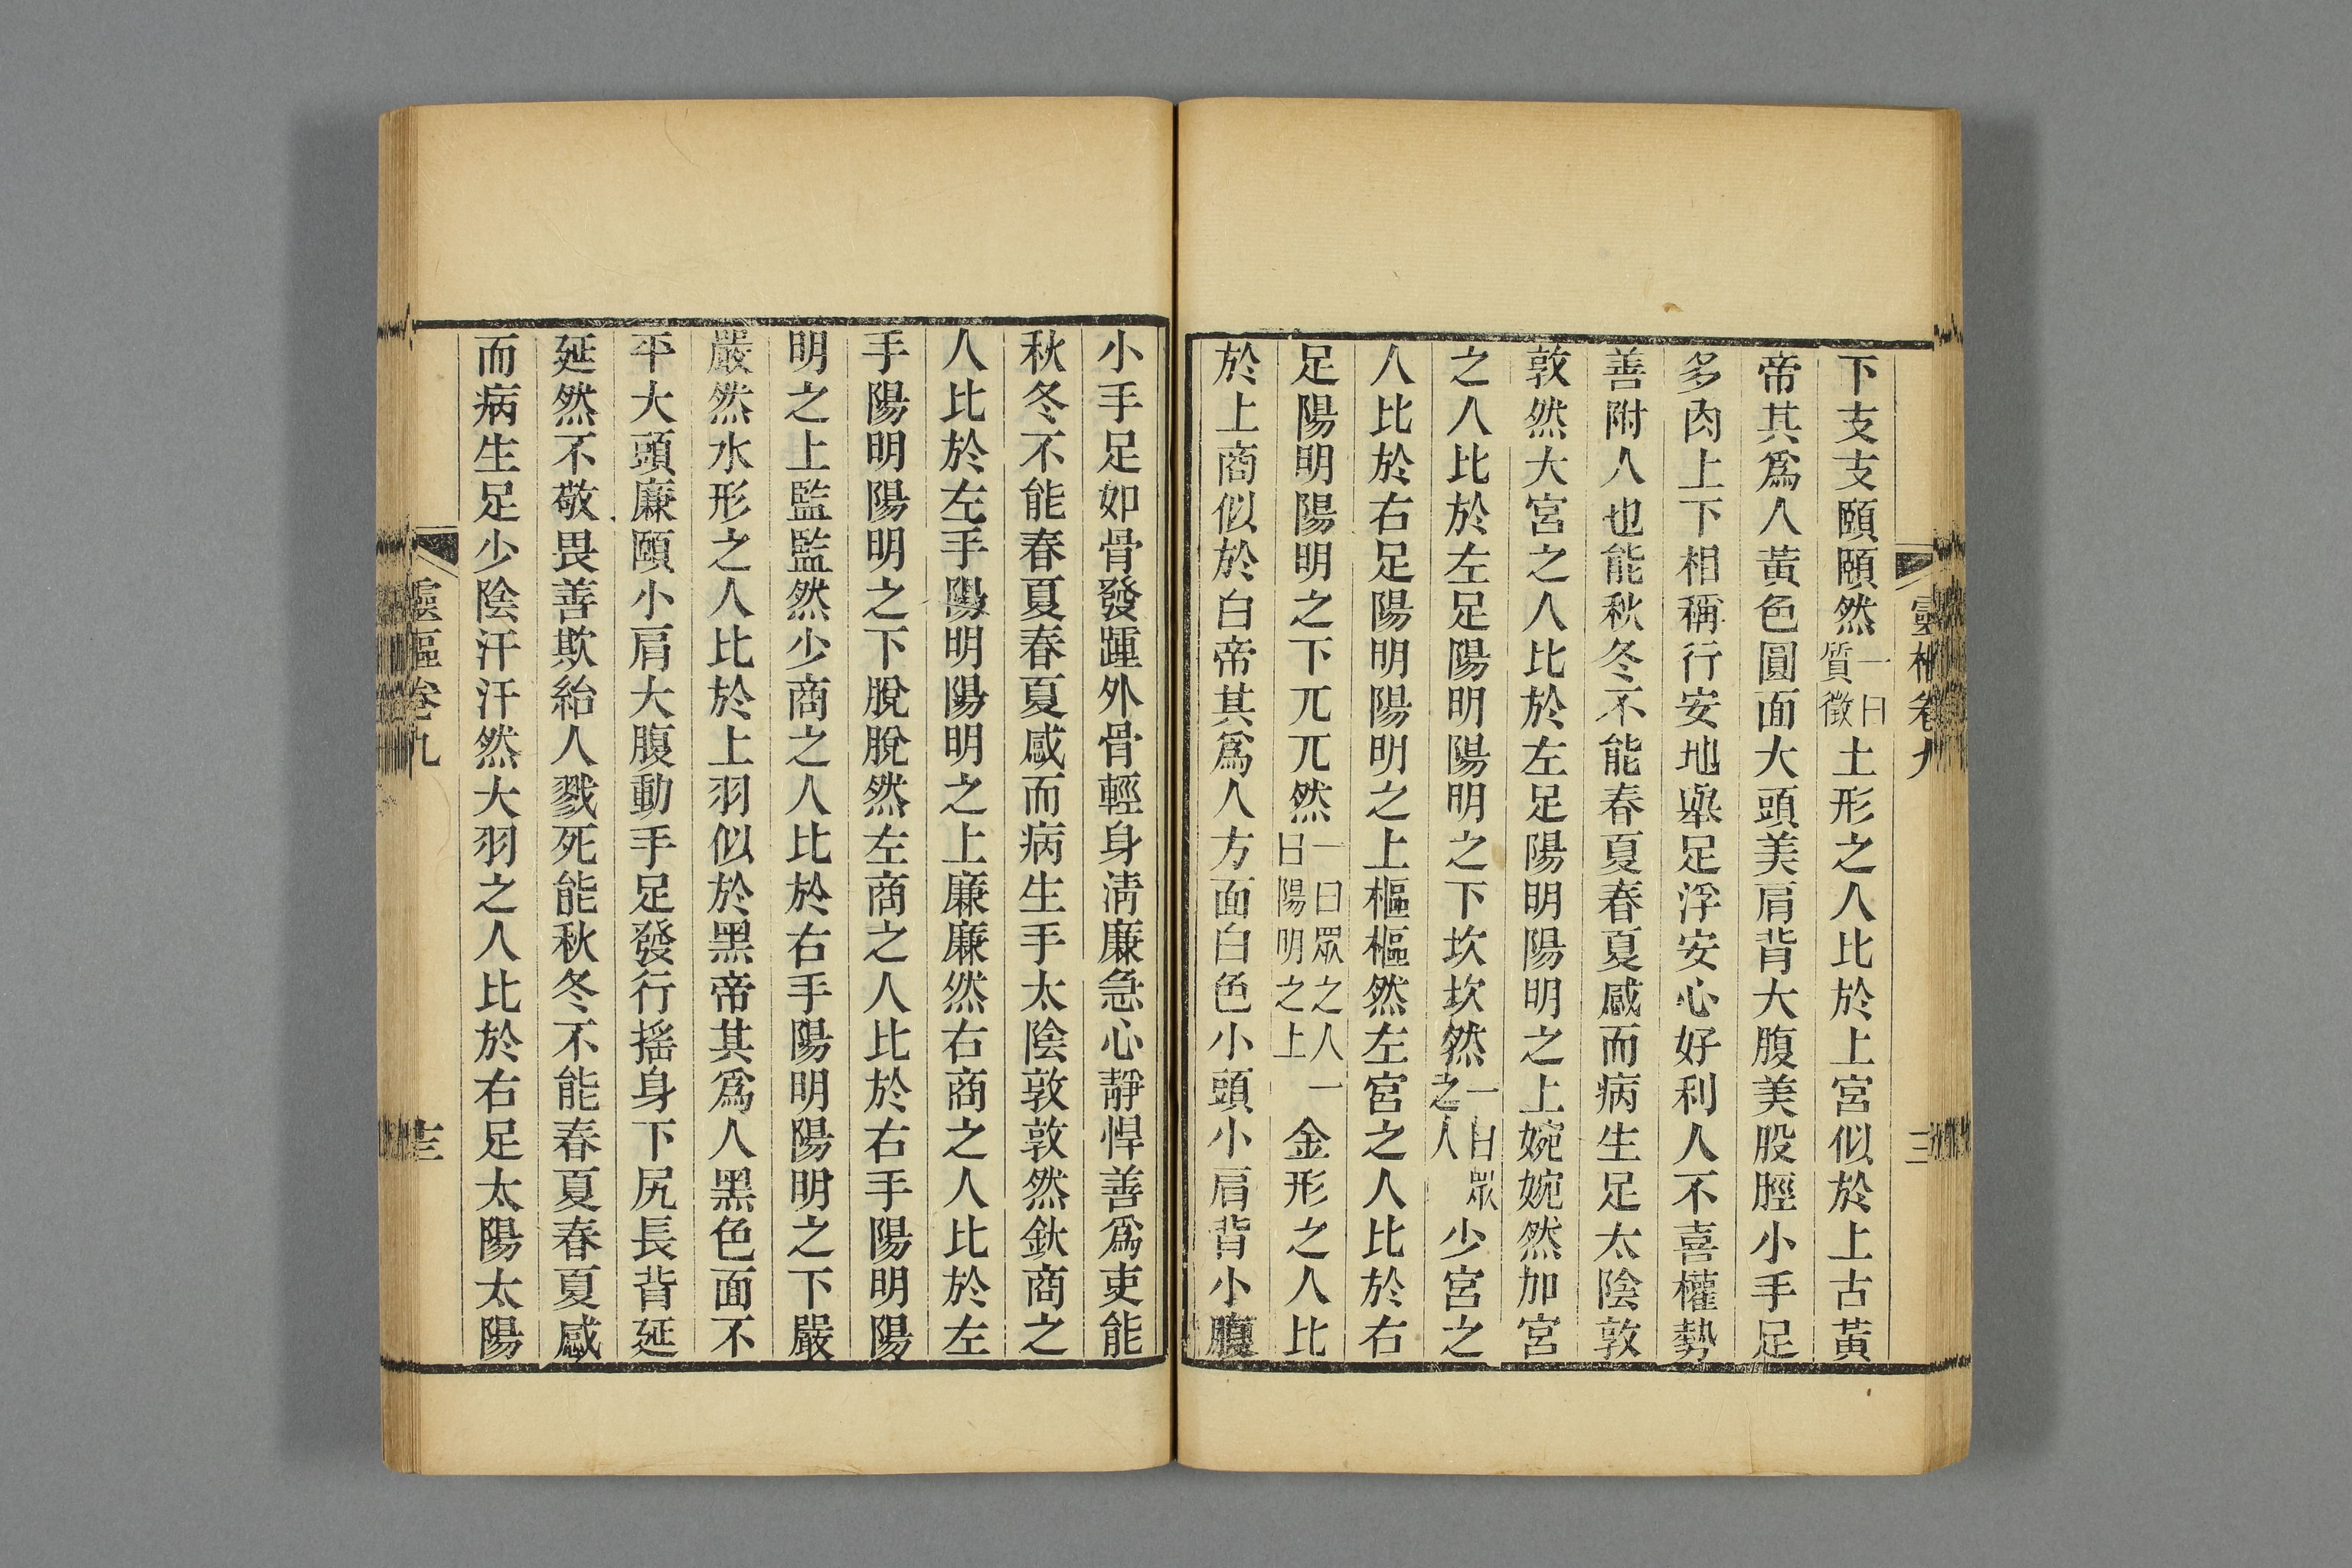 靈樞卷九
三
下支支頤頤然一曰質徵土形之人比於上宮似於上古黃
帝其爲人黃色圓面大頭美肩背大腹美股脛小手足
多肉上下相稱行安地舉足浮安心好利人不喜權勢
善附人也能秋冬不能春夏春夏感而病生足太陰敦
敦然大宮之人比於左足陽明陽明之上婉婉然加宮
之人比於左足陽明陽明之下坎坎然一曰眾之人少宮之
人比於右足陽明陽明之上樞樞然左宮之人比於右
足陽明陽明之下兀兀然一曰眾之人一曰陽明之上金形之人比
於上商似於白帝其爲人方面白色小頭小肩背小腹
小手足如骨發踵外骨輕身淸廉急心靜悍善爲吏能
秋冬不能春夏春夏感而病生手太陰敦敦然釱商之
人比於左手陽明陽明之上廉廉然右商之人比於左
手陽明陽明之下脫脫然左商之人比於右手陽明陽
明之上監監然少商之人比於右手陽明陽明之下嚴
嚴然水形之人比於上羽似於黑帝其爲人黑色面不
平大頭廉頤小肩大腹動手足發行搖身下尻長背延
延然不敬畏善欺紿人戮死能秋冬不能春夏春夏感
而病生足少陰汗汗然大羽之人比於右足太陽太陽
靈樞卷九